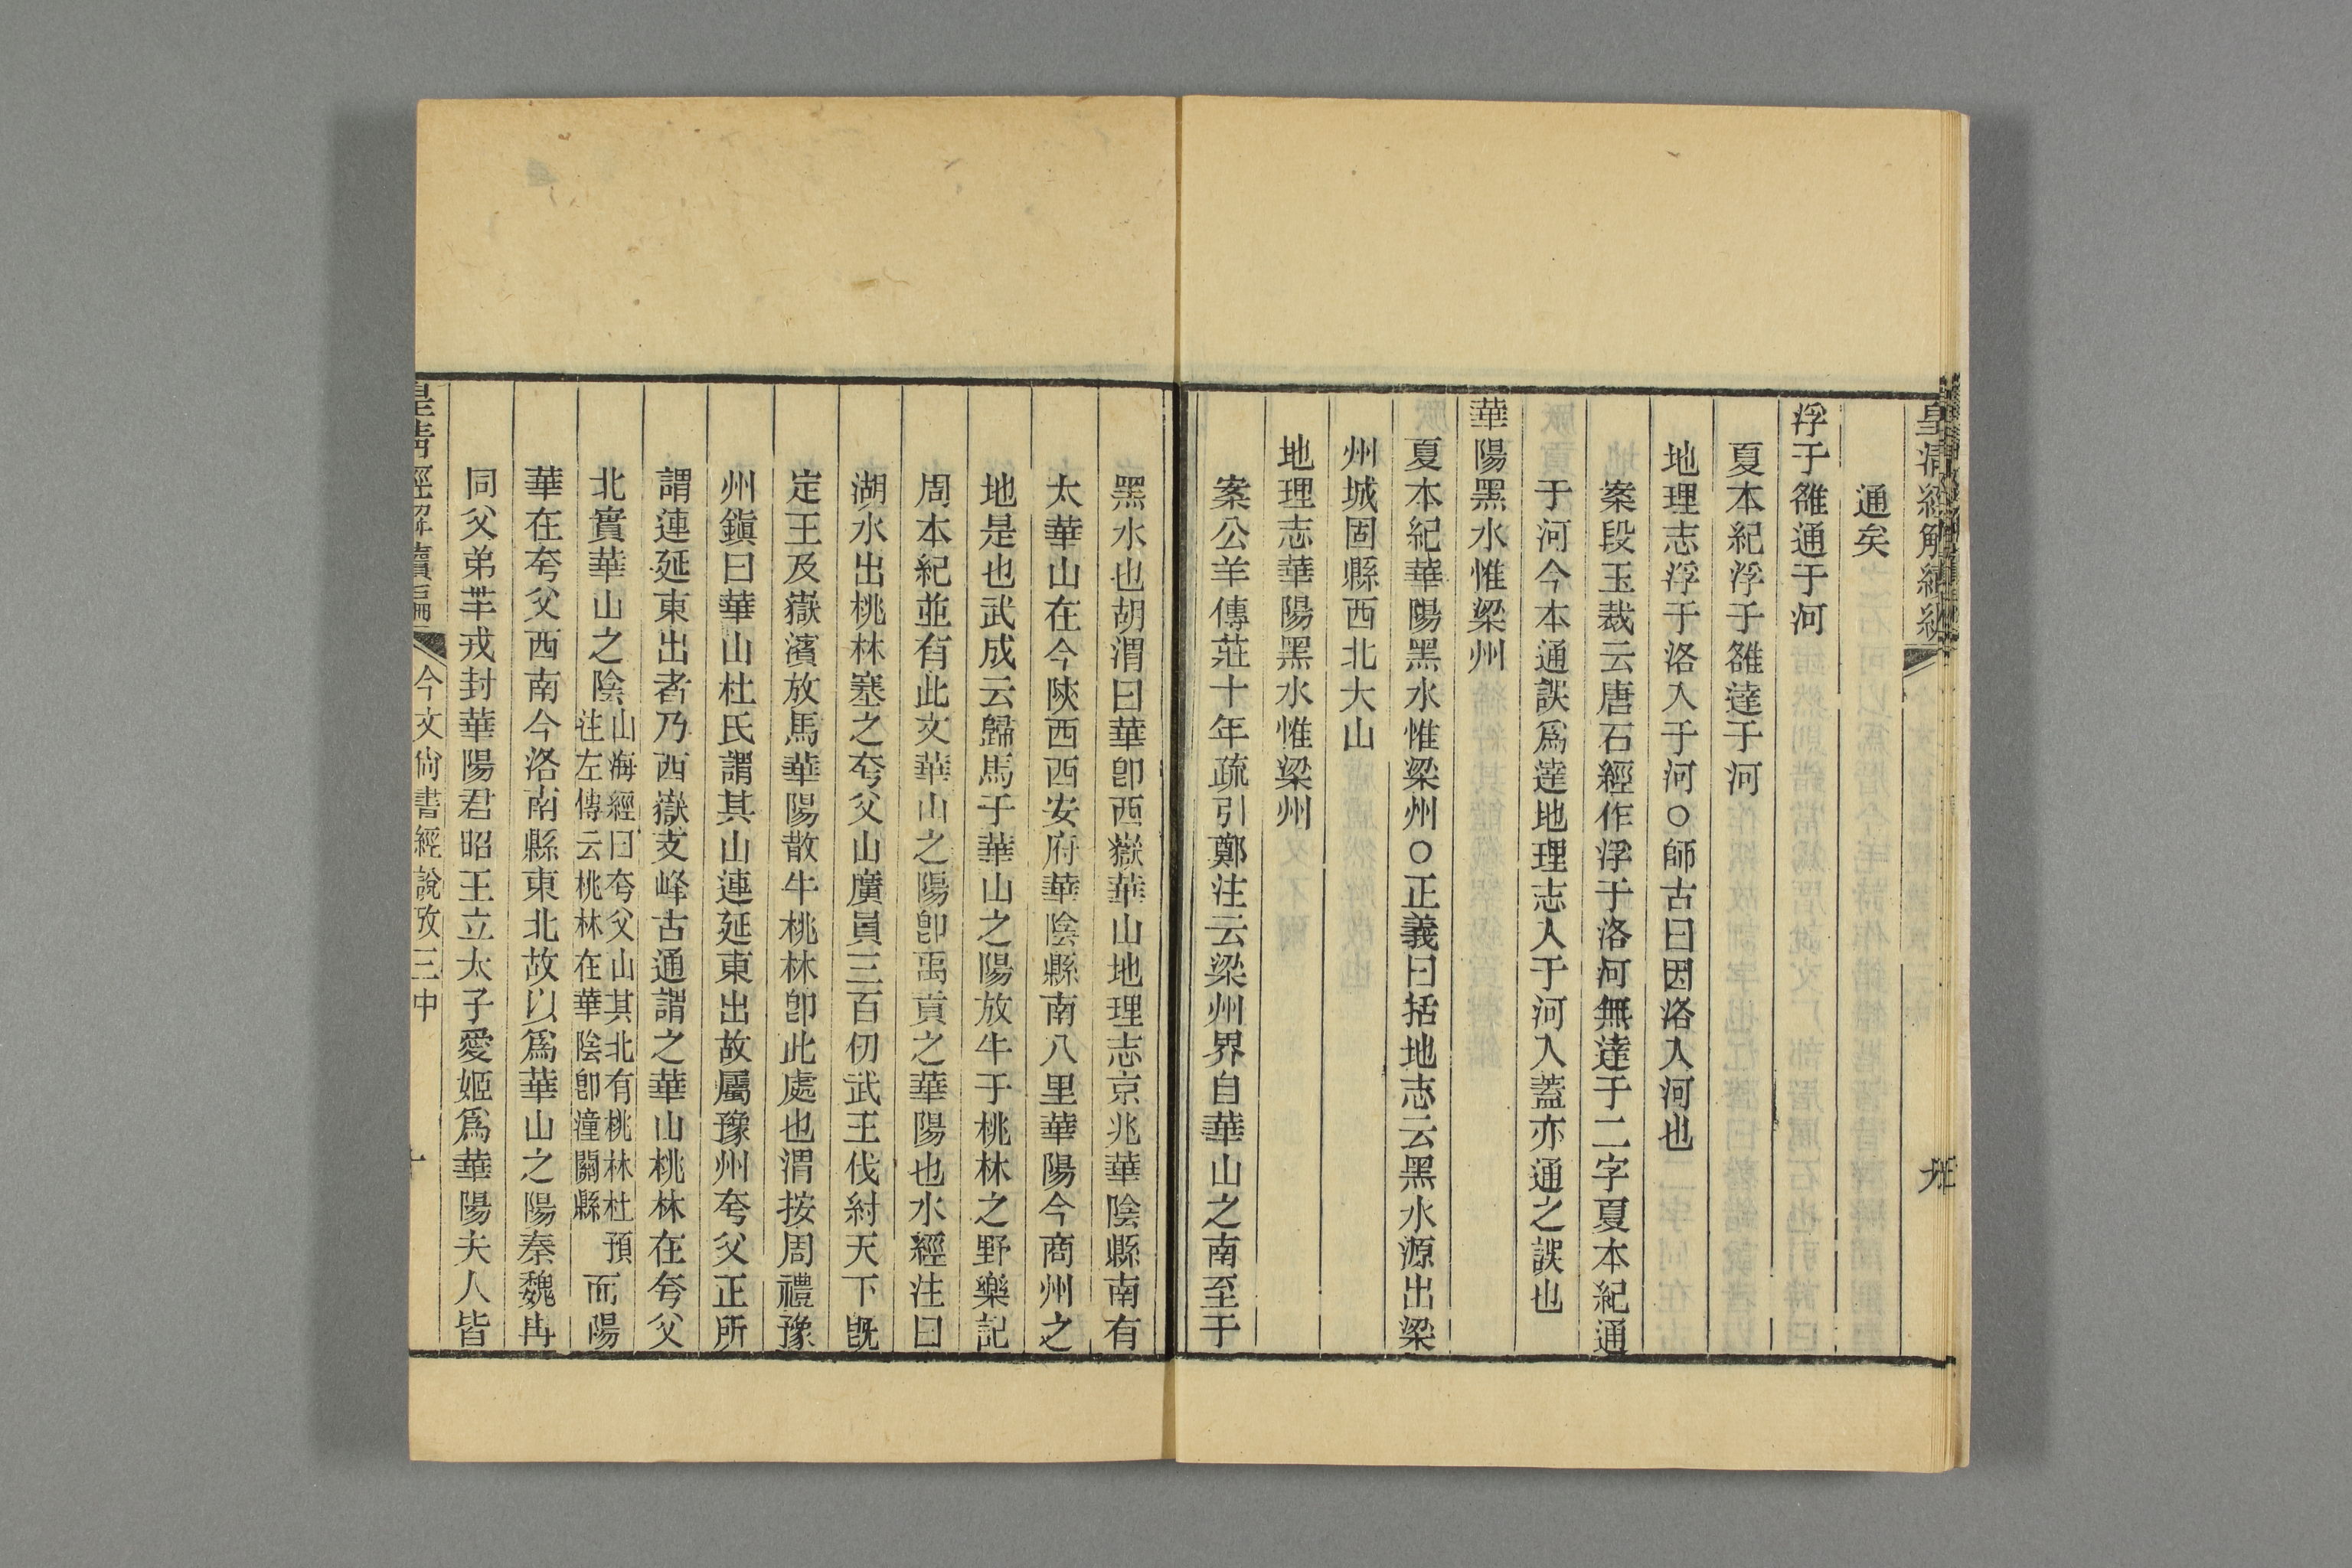 皇清經解續編
九
通矣
浮于雒通于河
夏本紀浮于雒達于河
地理志浮于洛入于河○師古曰因洛入河也
案段玉裁云唐石經作浮于洛河無達于二字夏本紀通
于河今本通誤爲達地理志入于河入蓋亦通之誤也
華陽黑水惟梁州
夏本紀華陽黑水惟梁州○正義曰括地志云黑水源出梁
州城固縣西北大山
地理志華陽黑水惟梁州
案公羊傳莊十年疏引鄭注云梁州界自華山之南至于
黑水也胡渭曰華卽西嶽華山地理志京兆華陰縣南有
太華山在今陜西西安府華陰縣南八里華陽今商州之
地是也武成云歸馬于華山之陽放牛于桃林之野樂記
周本紀並有此文華山之陽卽禹貢之華陽也水經注曰
湖水出桃林塞之夸父山廣員三百仞武王伐紂天下旣
定王及嶽濱放馬華陽散牛桃林卽此處也渭按周禮豫
州鎭曰華山杜氏謂其山連延東出故屬豫州夸父正所
謂連延東出者乃西嶽支峰古通謂之華山桃林在夸父
北實華山之陰山海經曰夸父山其北有桃林杜預注左傳云桃林在華陰卽潼關縣而陽
華在夸父西南今洛南縣東北故以爲華山之陽秦魏冉
同父弟芈戎封華陽君昭王立太子愛姬爲華陽夫人皆
皇清經解續編
今文尙書經說攷三中
十